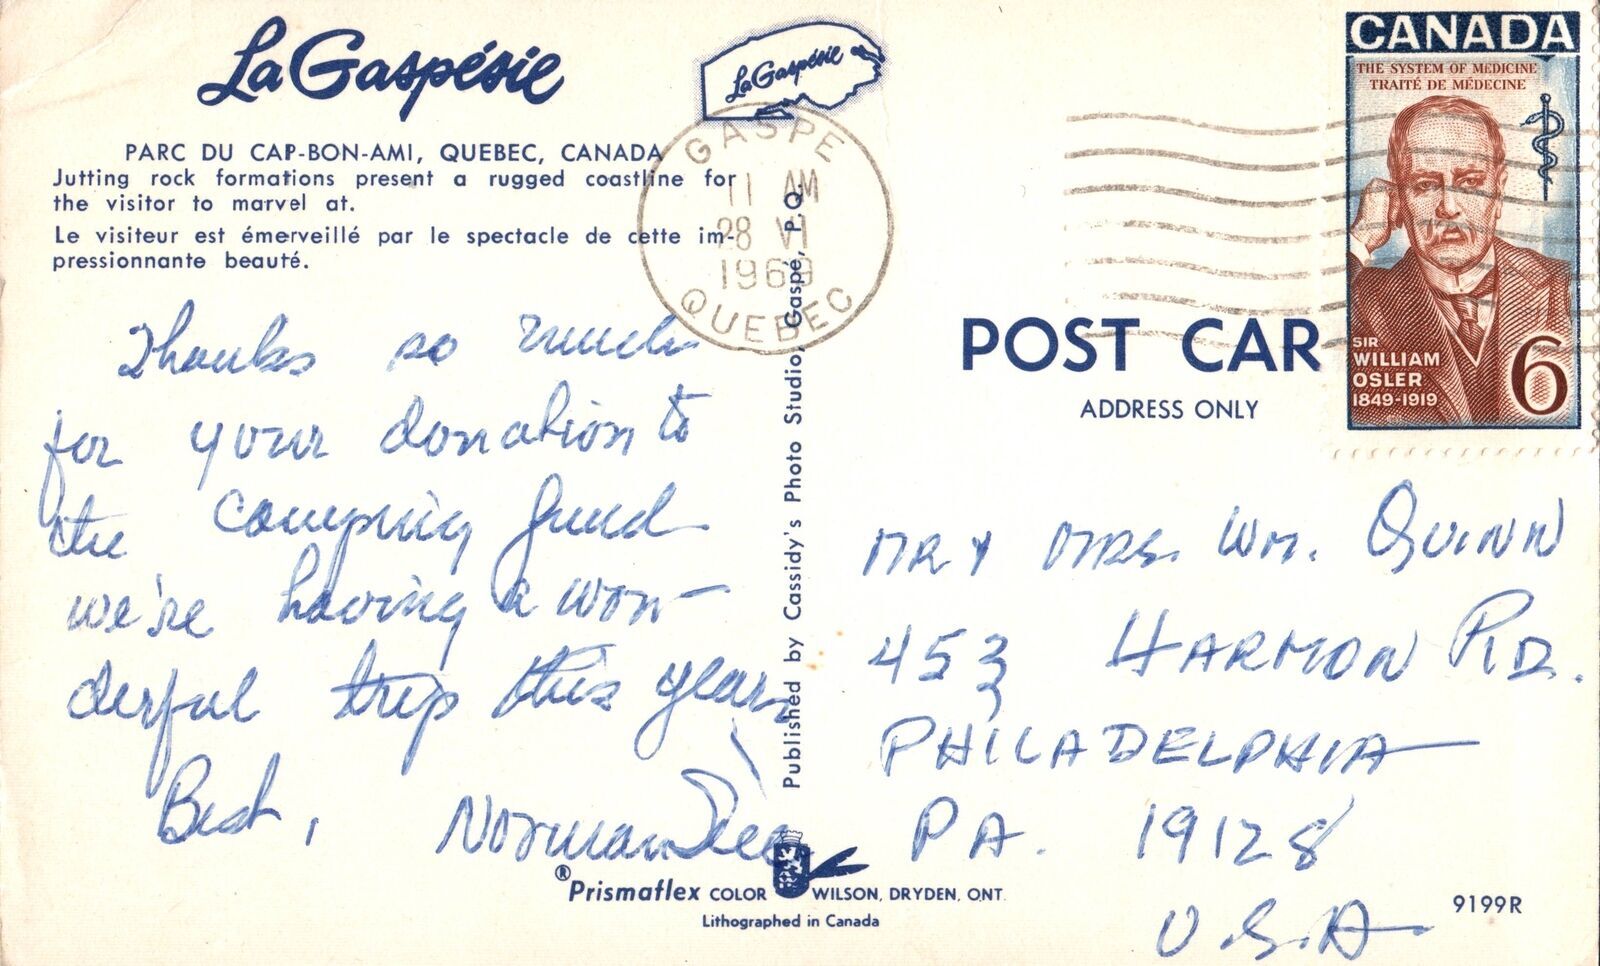 La Gaspésie
La Gaspésie
PARC DU CAP-BON-AMI, QUEBEC, CANADA
Jutting rock formations present a rugged coastline for
the visitor to marvel at.
Le visiteur est émerveillé par le spectacle de cette im-
pressionnante beauté.
GASPE
11 AM
28 VI
1969
QUEBEC
CANADA
THE SYSTEM OF MEDICINE
TRAITÉ DE MÉDECINE
SIR
WILLIAM
OSLER
1849-1919
6
POST CAR
ADDRESS ONLY
Thanks so much
for your donation to
the camping fund
we're having a won-
derful trip this year
Best, Norman
Published by Cassidy's Photo Studio, Gaspé, P.Q.
MR & MRS. WM. QUINN
453 HARMON RD.
PHILADELPHIA
PA. 19128
U.S.A.
®Prismaflex COLOR WILSON, DRYDEN, ONT.
Lithographed in Canada
9199R